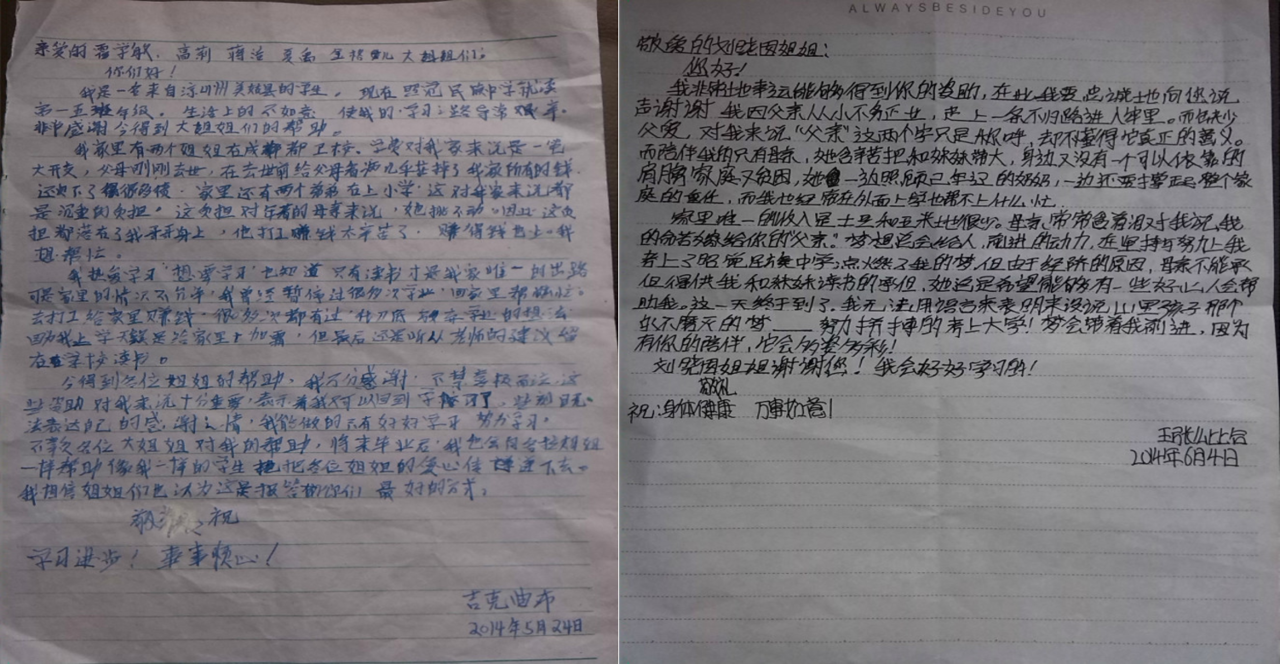 亲爱的
大姐姐们:
你们好!
我是一名来自凉山州美姑县的学生。现在昭觉民族中学就读
年级。生活上的不如意,使我的学习之路异常艰辛。
非常感谢今得到大姐姐们的帮助。
我家里有两个姐姐在成都卫校。学费对我家来说是一笔
大开支,父母刚刚去世,在去世前给父母看病几乎花掉了我家所有的钱
还欠下了很多债,家里还有两个弟弟在上小学,这对我家来说都
是沉重的负担。这负担对年老的母亲来说,她挑不动。因此这负
担都落在了我哥哥身上,他打工赚钱太辛苦了,
想帮忙。
我热爱学习,想要学习,也知道只有读书才是我家唯一的出路
可是家里的情况不允许,我曾经暂停过很多次学业,回家里帮忙。
去打工给家里赚钱,很多次都有过
因为我上学
但最后还是听从老师的建议留
在学校读书。
今得到各位姐姐的帮助,我万分感谢,不禁喜极而泣,这
些资助对我来说十分重要,表示着我又可以回到学校了,
法表达自己的感谢之情,我能做的只有好好学习,努力学习。
不辜负各位大姐姐对我的帮助,将来毕业后,我也会向各位姐姐
一样帮助像我一样的学生,把各位姐姐的爱心传递下去。
我相信姐姐们也认为这是报答你们最好的方式。
祝
学习进步!事事顺心!
吉克曲布
2014年5月24日
ALWAYSBESIDEYOU
敬爱的刘晓团姐姐:
您好!
我非常地幸运能够得到你的资助,在此我要忠诚地向您说
声谢谢 我因父亲从小不务正业,走上一条不归路进入牢里。而缺少
父爱,对我来说"父亲"这两个字只是称呼,却不懂得它真正的意义。
而陪伴我的只有母亲,她含辛苦把和妹妹带大,身边又没有一个可以依靠的
肩膀家庭又贫困,她一边照顾已年迈的奶奶,一边还要撑起整个家
庭的重任,而我也经常在外面上学也帮不上什么忙。
家里唯一的收入是土豆和玉米地很少。母亲常常含着泪对我说,我
的命苦
给你的"父亲"。梦想总会给人前进的动力,在坚持与努力上我
考上了昭觉民族中学,点燃了我的梦,但由于经济的原因,母亲不能承
但得供我和妹妹读书的重但,她还是希望能够有一些好心人会帮
助我。这一天终于到了。我无法用语言来表明来没说山里孩子那个
永不磨灭的梦——努力拼搏的考上大学!梦会带着我前进,因为
有你的陪伴,它会多姿多彩!
刘晓团姐姐谢谢您!我会好好学习的!
敬礼
祝:身体健康 万事如意!
2014年6月4日